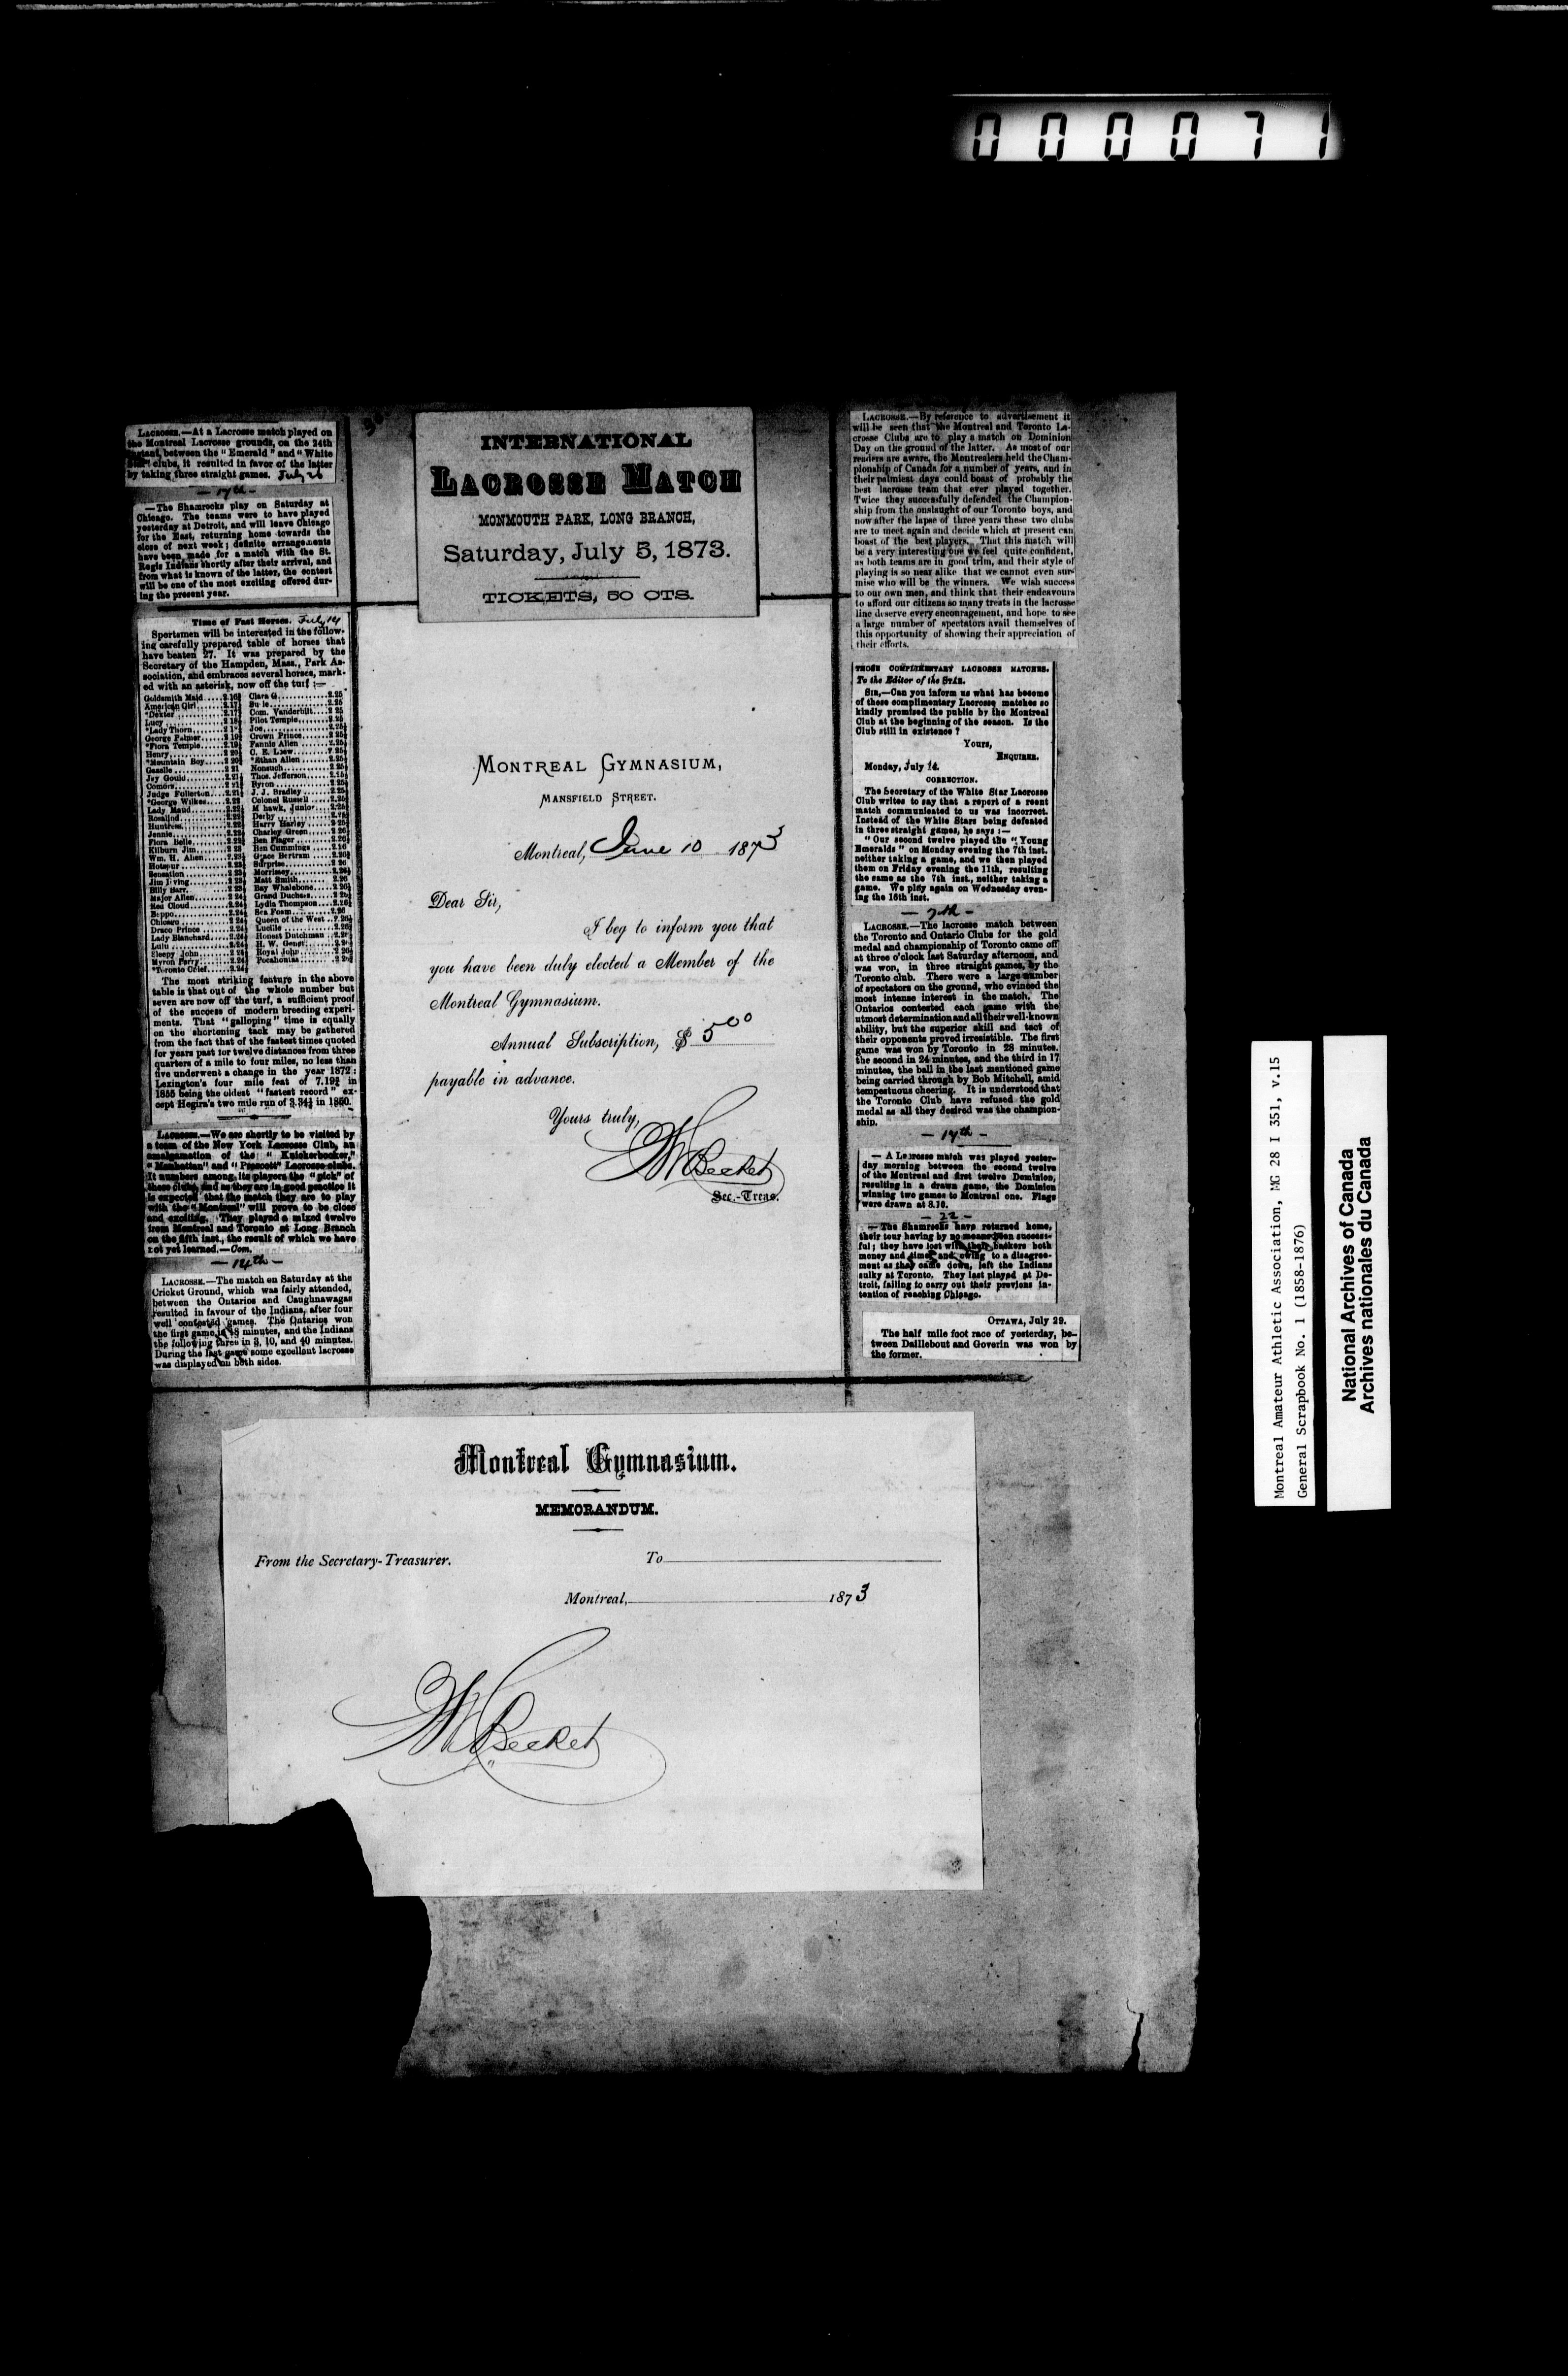 000071
LACROSSE.—At a Lacrosse match played on
the Montreal Lacrosse grounds, on the 24th
instant, between the "Emerald" and "White
Star" clubs, it resulted in favor of the latter
by taking three straight games. July 26
— 17th —
—The Shamrocks play on Saturday at
Chicago. The teams were to have played
yesterday at Detroit, and will leave Chicago
for the East, returning home towards the
close of next week; definite arrangements
have been made for a match with the St.
Regis Indians shortly after their arrival, and
from what is known of the latter, the contest
will be one of the most exciting offered dur-
ing the present year.
Time of Fast Horses. July 14
Sportsmen will be interested in the follow-
ing carefully prepared table of horses that
have beaten 27. It was prepared by the
Secretary of the Hampden, Mass., Park As-
sociation, and embraces several horses, mark-
ed with an asterisk, now off the turf :—
Goldsmith Maid
American Girl
*Dexter
Lucy
*Lady Thorn
George Palmer
*Flora Temple
Henry
*Mountain Boy
Gazelle
Jay Gould
Judge Fullerton
*George Wilkes
Lady Maud
Rosalind
Huntress
Jennie
Flora Belle
Kilburn Jim
Wm. H. Allen
Hotspur
Sensation
Jim Irving
Billy Barr
Major Allen
Red Cloud
Beppo
Chicago
Draco Prince
Lady Blanchard
Lulu
Sleepy John
Myron Perry
*Toronto Chief
Clara G
Com. Vanderbilt
Pilot Temple
Joe
Crown Prince
Fannie Allen
*Ethan Allen
Nonsuch
Thos. Jefferson
Byron
J. J. Bradley
Colonel Russell
Mohawk, Junior
Derby
Harry Harley
Charley Green
Ben Flager
Ben Cummings
Grace Bertram
Surprise
Morrissey
Matt Smith
Bay Whalebone
Grand Duchess
Lydia Thompson
Sea Foam
Queen of the West
Lucille
Honest Dutchman
H. W. Genet
Royal John
Pocahontas
The most striking feature in the above
table is that out of the whole number but
seven are now off the turf, a sufficient proof
of the success of modern breeding experi-
ments. That "galloping" time is equally
on the shortening tack may be gathered
from the fact that of the fastest times quoted
for years past for twelve distances from three
quarters of a mile to four miles, no less than
five underwent a change in the year 1872:
Lexington's four mile feat of 7.19¾ in
1855 being the oldest "fastest record" ex-
cept Hegira's two mile run of 3.34¼ in 1850.
LACROSSE.—We are shortly to be visited by
a team of the New York Lacrosse Club, an
amalgamation of the "Knickerbocker,"
"Manhattan" and "Prescott" Lacrosse clubs.
It numbers among its players the "pick" of
these clubs, and as they are in good practice it
is expected that the match they are to play
with the "Montreal" will prove to be close
and exciting. They played a mixed twelve
from Montreal and Toronto at Long Branch
on the fifth inst., the result of which we have
not yet learned.—Com.
— 14th —
LACROSSE.—The match on Saturday at the
Cricket Ground, which was fairly attended,
between the Ontarios and Caughnawagas
resulted in favour of the Indians, after four
well contested games. The Ontarios won
the first game in 18 minutes, and the Indians
the following three in 3, 10, and 40 minutes.
During the last game some excellent lacrosse
was displayed on both sides.
INTERNATIONAL
LACROSSE MATCH
MONMOUTH PARK, LONG BRANCH,
Saturday, July 5, 1873.
TICKETS, 50 CTS.
MONTREAL GYMNASIUM,
MANSFIELD STREET.
Montreal, June 10 1873
Dear Sir,
I beg to inform you that
you have been duly elected a Member of the
Montreal Gymnasium.
Annual Subscription, $ 5 00
payable in advance.
Yours truly,
Becket
Sec.-Treas.
LACROSSE.—By reference to advertisement it
will be seen that the Montreal and Toronto La-
crosse Clubs are to play a match on Dominion
Day on the ground of the latter. As most of our
readers are aware, the Montrealers held the Cham-
pionship of Canada for a number of years, and in
their palmiest days could boast of probably the
best lacrosse team that ever played together.
Twice they successfully defended the Champion-
ship from the onslaught of our Toronto boys, and
now after the lapse of three years these two clubs
are to meet again and decide which at present can
boast of the best players. That this match will
be a very interesting one we feel quite confident,
as both teams are in good trim, and their style of
playing is so near alike that we cannot even sur-
mise who will be the winners. We wish success
to our own men, and think that their endeavours
to afford our citizens so many treats in the lacrosse
line deserve every encouragement, and hope to see
a large number of spectators avail themselves of
this opportunity of showing their appreciation of
their efforts.
THOSE COMPLIMENTARY LACROSSE MATCHES.
To the Editor of the STAR.
SIR,—Can you inform us what has become
of these complimentary Lacrosse matches so
kindly promised the public by the Montreal
Club at the beginning of the season. Is the
Club still in existence ?
Yours,
ENQUIRER.
Monday, July 14.
CORRECTION.
The Secretary of the White Star Lacrosse
Club writes to say that a report of a recent
match communicated to us was incorrect.
Instead of the White Stars being defeated
in three straight games, he says :—
"Our second twelve played the "Young
Emeralds" on Monday evening the 7th inst.
neither taking a game, and we then played
them on Friday evening the 11th, resulting
the same as the 7th inst., neither taking a
game. We play again on Wednesday even-
ing the 16th inst.
— 7th —
LACROSSE.—The lacrosse match between
the Toronto and Ontario Clubs for the gold
medal and championship of Toronto came off
at three o'clock last Saturday afternoon, and
was won, in three straight games, by the
Toronto club. There were a large number
of spectators on the ground, who evinced the
most intense interest in the match. The
Ontarios contested each game with the
utmost determination and all their well-known
ability, but the superior skill and tact of
their opponents proved irresistible. The first
game was won by Toronto in 28 minutes,
the second in 24 minutes, and the third in 17
minutes, the ball in the last mentioned game
being carried through by Bob Mitchell, amid
tempestuous cheering. It is understood that
the Toronto Club have refused the gold
medal as all they desired was the champion-
ship.
— 17th —
— A Lacrosse match was played yester-
day morning between the second twelve
of the Montreal and first twelve Dominion,
resulting in a drawn game, the Dominion
winning two games to Montreal one. Flags
were drawn at 8.10.
— 22 —
— The Shamrocks have returned home,
their tour having by no means been success-
ful; they have lost with their backers both
money and time, and owing to a disagree-
ment as they came down, left the Indians
sulky at Toronto. They last played at De-
troit, failing to carry out their previous in-
tention of reaching Chicago.
OTTAWA, July 29.
The half mile foot race of yesterday, be-
tween Daillebout and Goverin was won by
the former.
Montreal Gymnasium.
MEMORANDUM.
From the Secretary-Treasurer.
To
Montreal, 1873
Becket
Montreal Amateur Athletic Association, MG 28 I 351, v.15
General Scrapbook No. 1 (1858-1876)
National Archives of Canada
Archives nationales du Canada